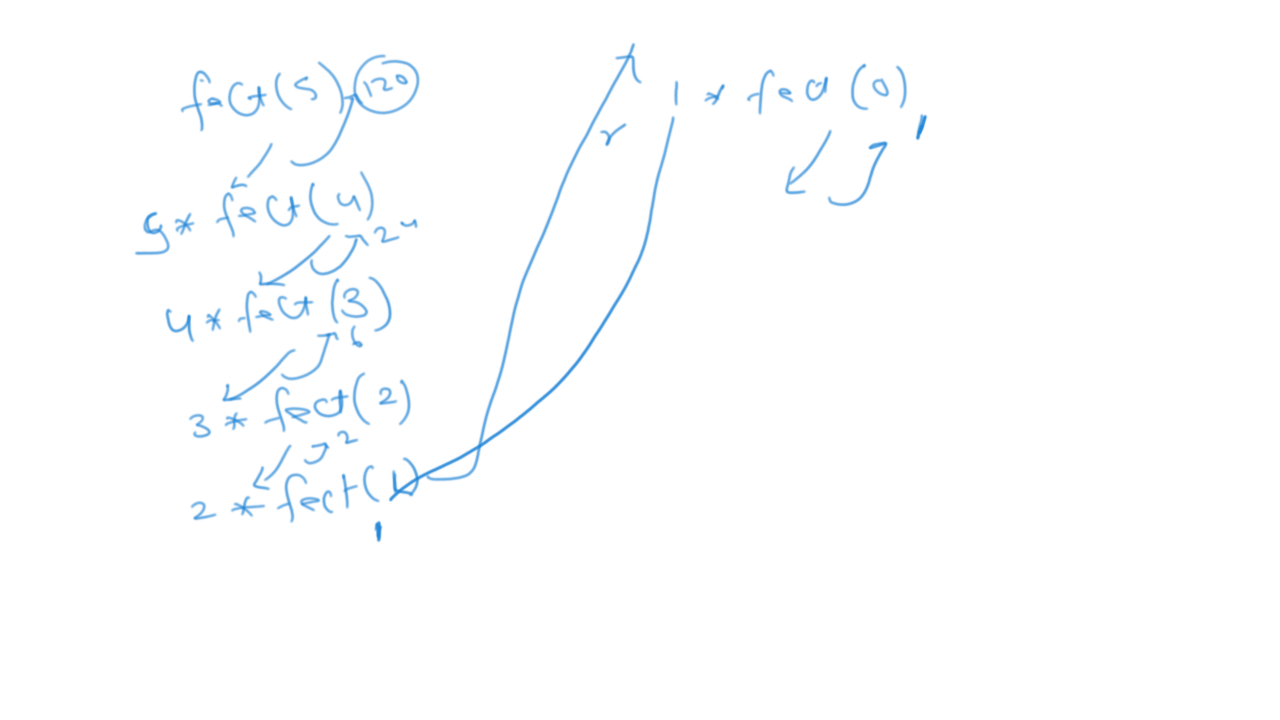 fact(5) 120
5 * fact(4)
24
4 * fact(3)
6
3 * fact(2)
2
2 * fact(1)
1
r
1 * fact(0)
1